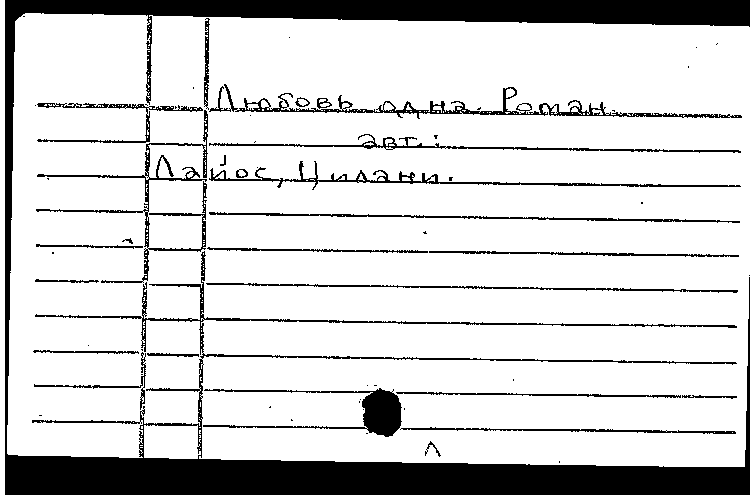 Любовь одна. Роман.
авт.:
Лайос, Цилани.